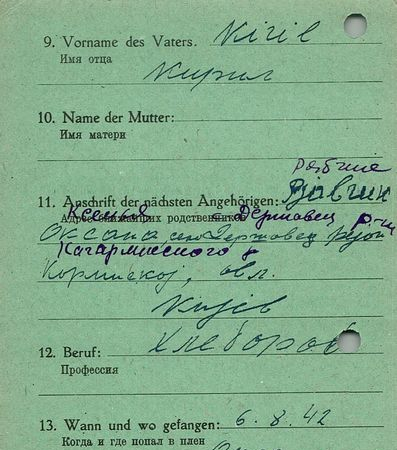 9. Vorname des Vaters. Kiril
Имя отца
Кирил
10. Name der Mutter:
Имя матери
11. Anschrift der nächsten Angehörigen:
Ксения Адрес ближайших родственников Державец р-на
Оксана, Державец район
Кагарлицкого
обл.
Kijiv
12. Beruf: Хлебороб
Профессия
13. Wann und wo gefangen: 6. 8. 42
Когда и где попал в плен